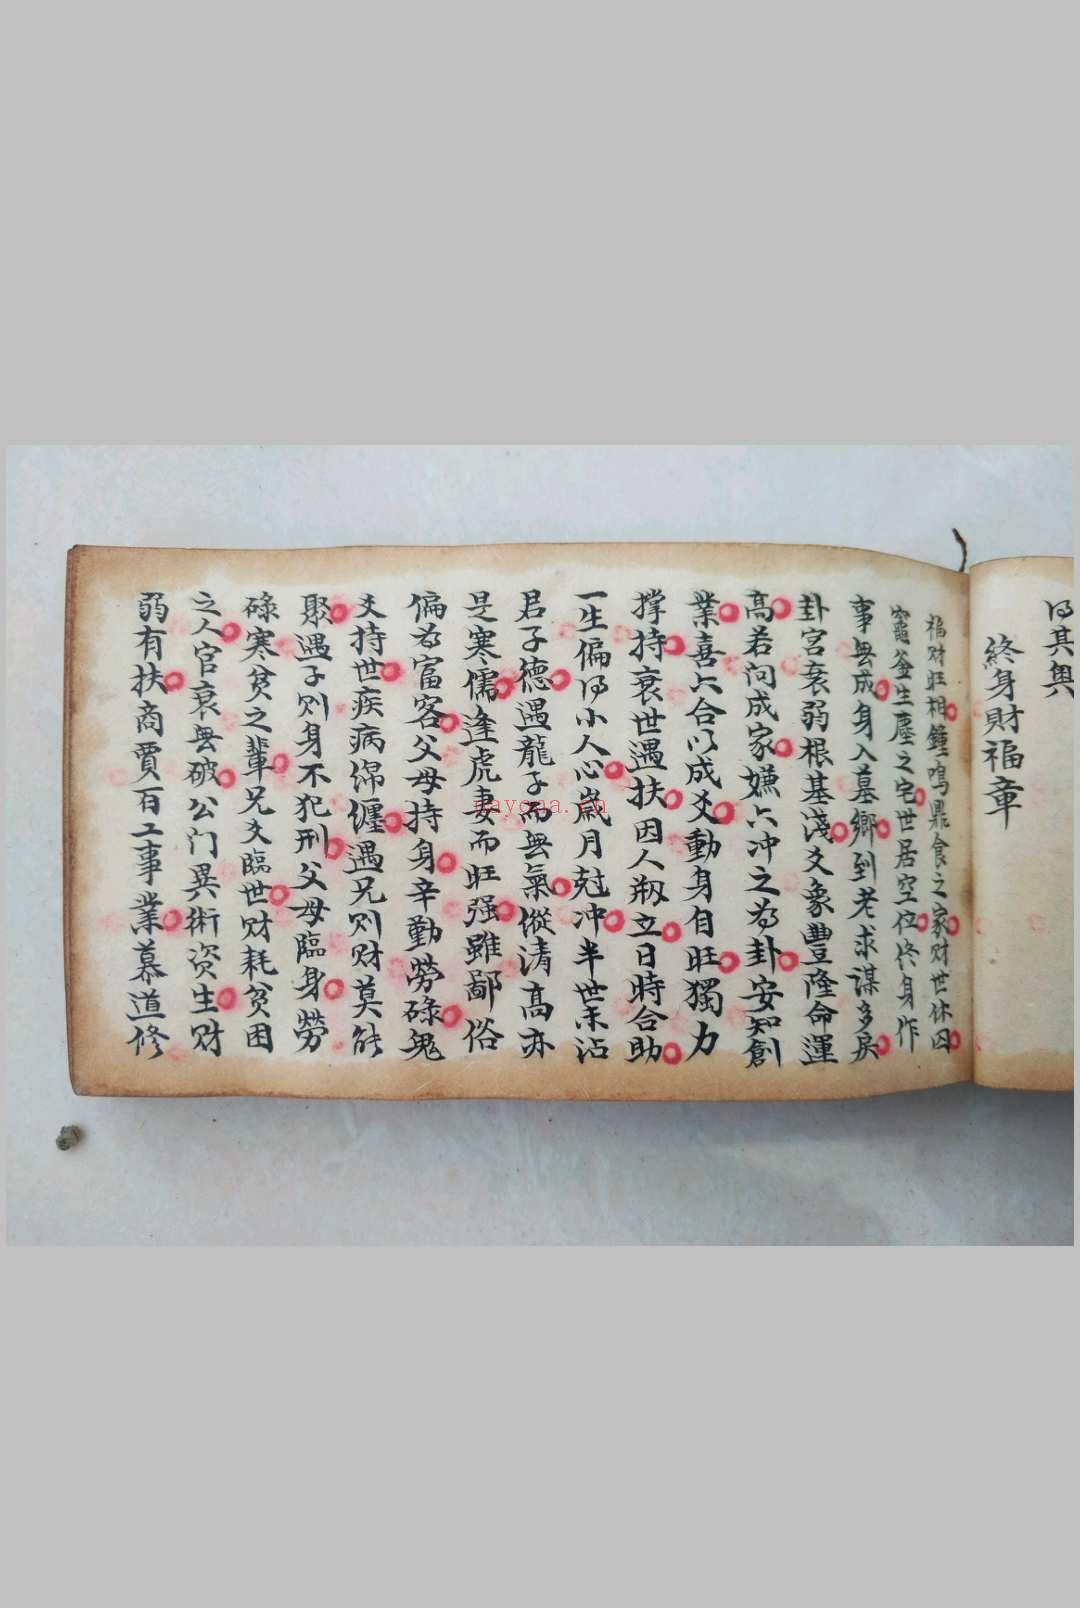 得其奥
終身財福章
福财旺相鐘鳴鼎食之家财世休囚
竈釜生塵之宅世居空位终身作
事無成身入墓鄉到老求謀多戾
卦宮衰弱根基淺爻象豐隆命運
高若问成家嫌六冲之為卦安知創
業喜六合以成爻動身自旺獨力
撑持衰世遇扶因人刱立日時合助
一生偏得小人心歲月尅冲半世未沾
君子德遇龍子而無氣縱清高亦
是寒儒逢虎妻而旺强雖鄙俗
偏為富客父母持身辛勤勞碌鬼
爻持世疾病綿纏遇兄则财莫能
聚遇子则身不犯刑父母臨身勞
碌寒贫之輩兄爻臨世财耗贫困
之人官衰無破公门異術资生财
弱有扶商賈百工事業慕道修
nayona.cn